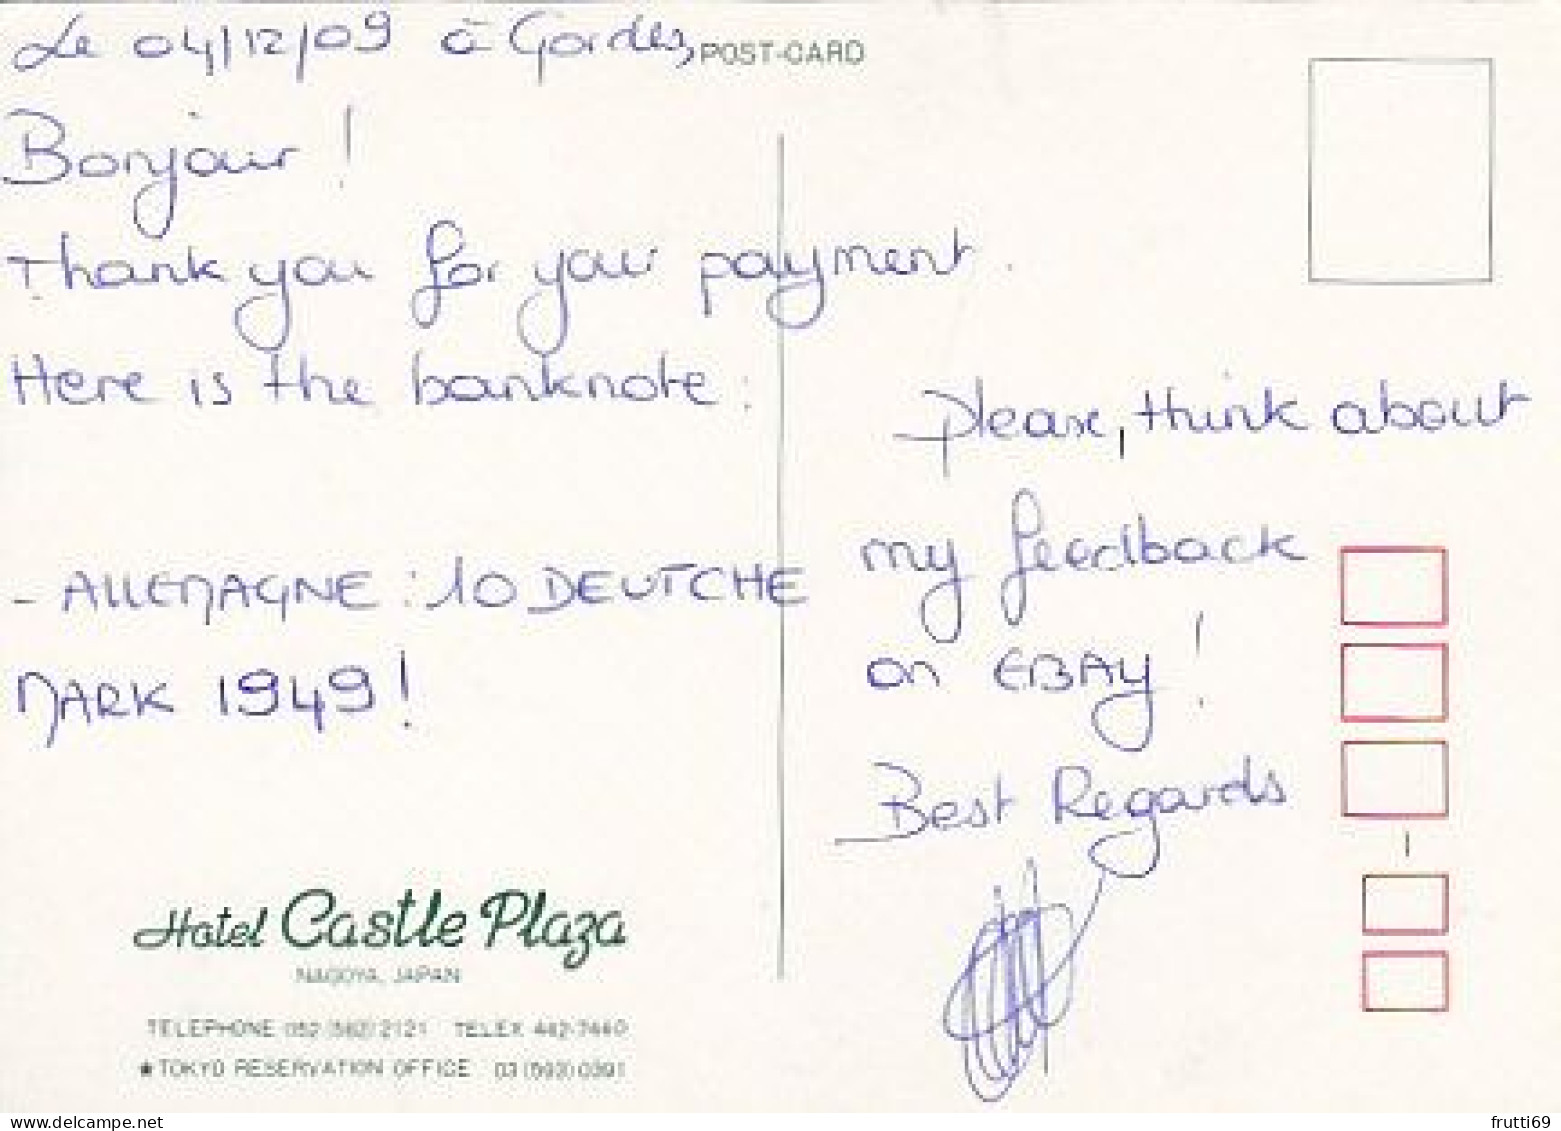 Le 04/12/09 à Gordes,
POST-CARD
Bonjour !
Thank you for your payment.
Here is the banknote :
- ALLEMAGNE : 10 DEUTCHE
MARK 1949 !
Please, think about
my feedback
on EBAY !
Best Regards
Hotel Castle Plaza
NAGOYA, JAPAN
TELEPHONE 052 (582) 2121 TELEX 442-7440
★ TOKYO RESERVATION OFFICE 03 (593) 0391
www.delcampe.net
frutti69